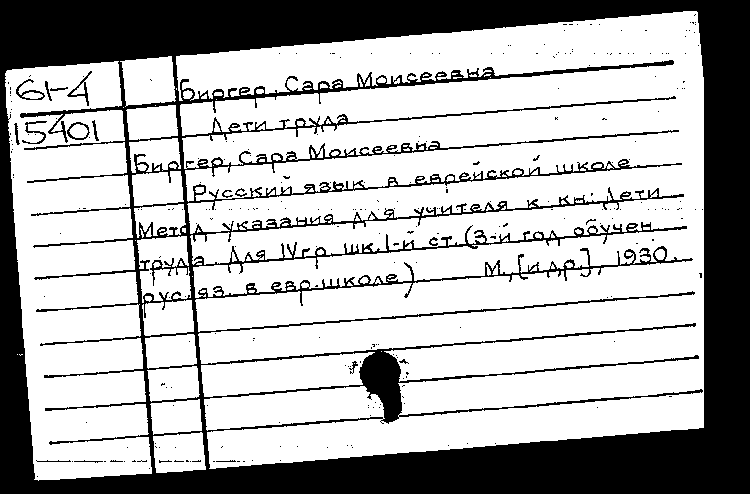 61-4 Биргер, Сара Моисеевна
15401 Дети труда
Биргер, Сара Моисеевна
Русский язык в еврейской школе.
Метод указания для учителя к кн: Дети
труда. Для IV гр. шк. 1-й ст. (3-й год обучен
рус. яз. в евр. школе) М., [и др.], 1930.